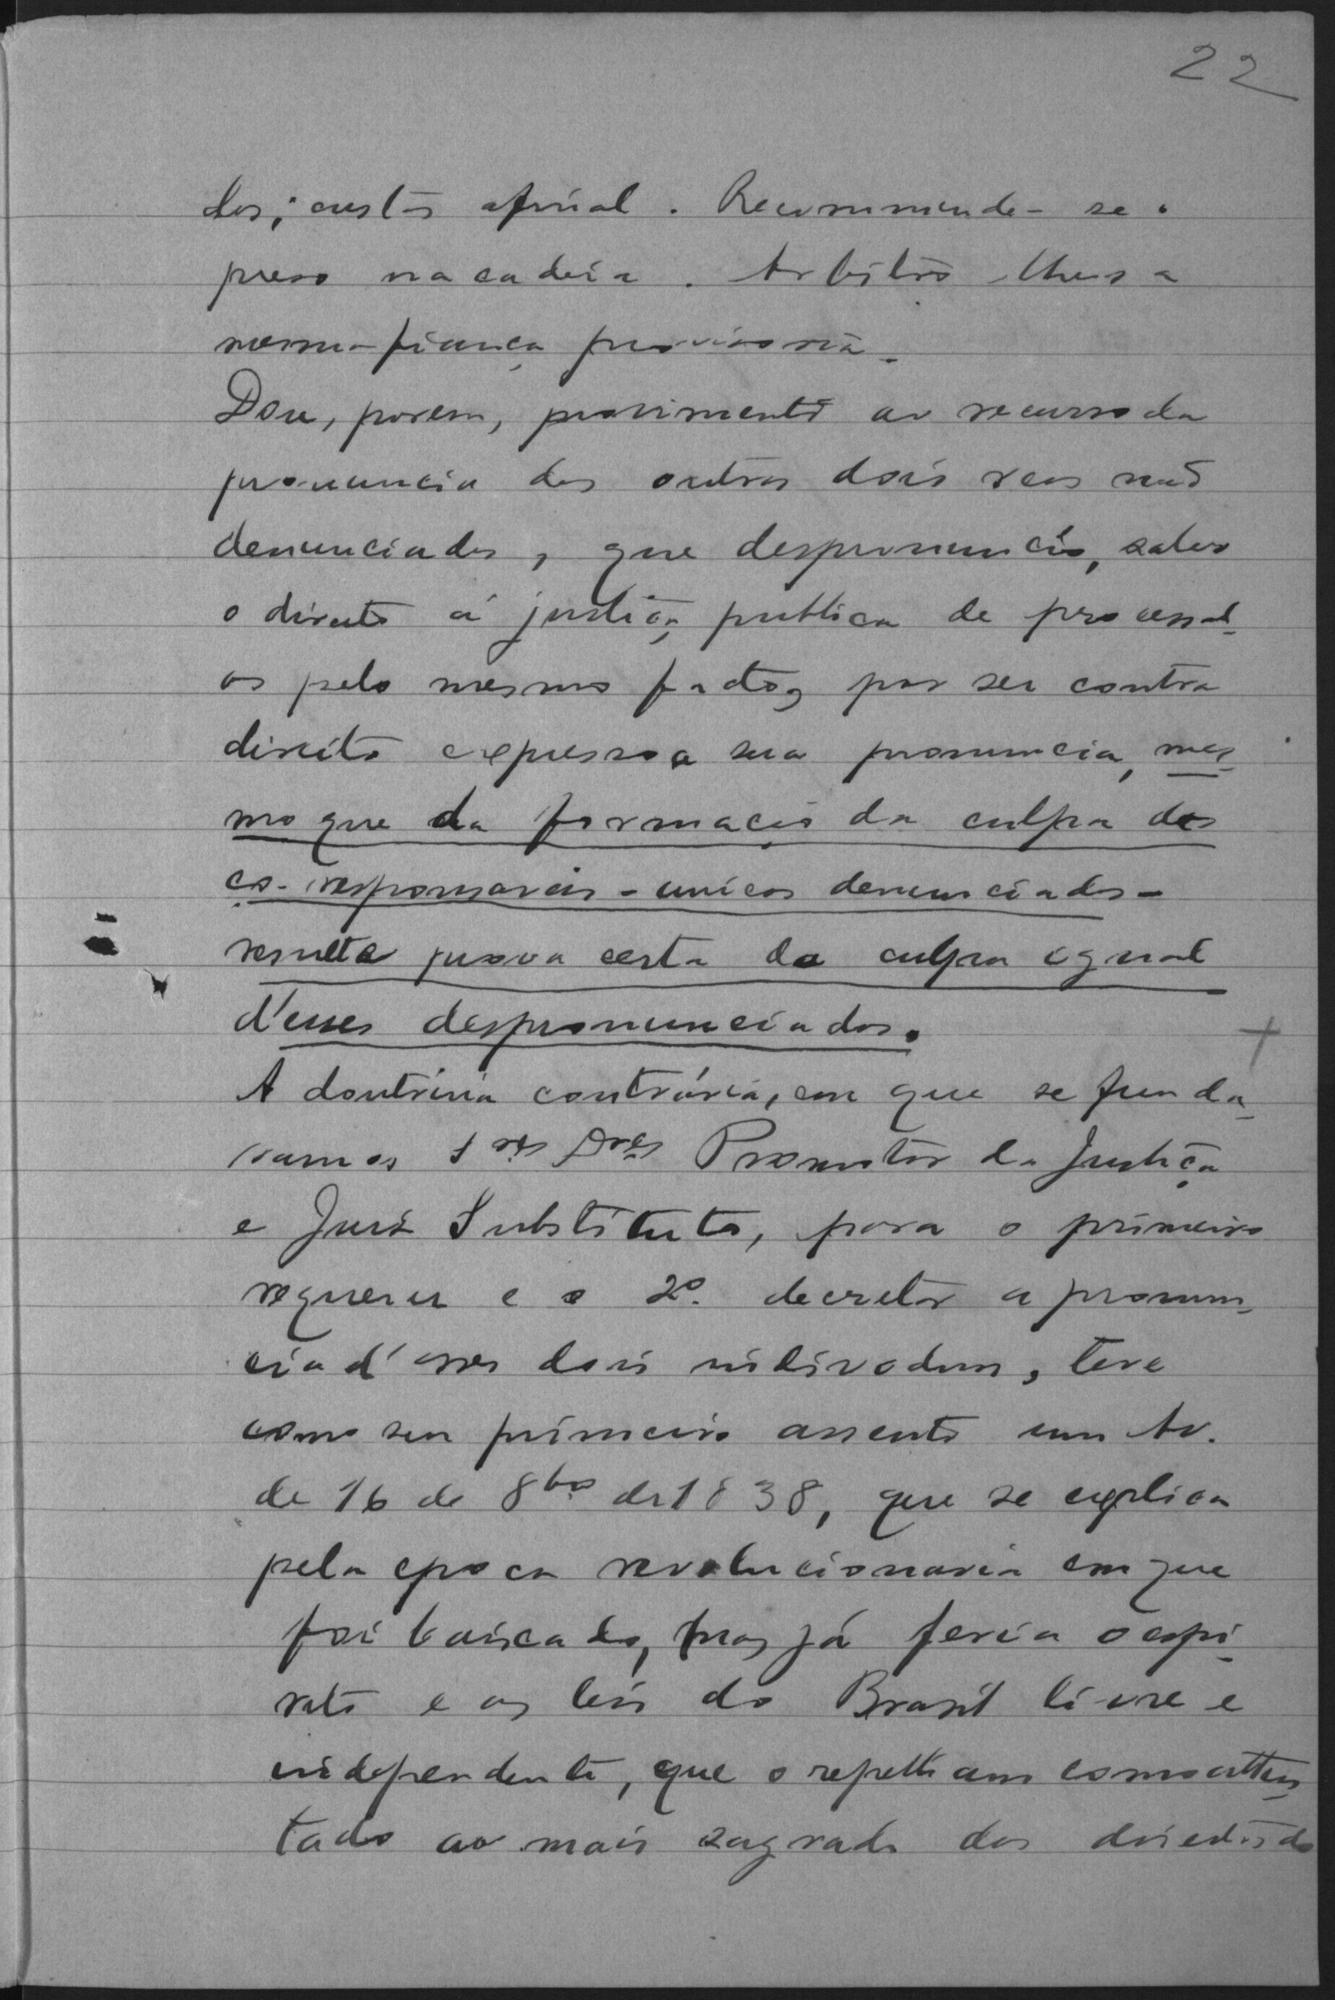 22
dos; custas afinal. Recommende-se o
preso na cadeia. Arbitro-lhes a
mesma fiança provisoria.
Dou, porem, provimento ao recurso da
pronuncia dos outros dois reos não
denunciados, que despronuncio, salvo
o direito á justiça publica de processal-
os pelo mesmo facto, por ser contra
direito expresso a sua pronuncia, mes-
mo que da formação da culpa dos
co-responsaveis - unicos denunciados -
resulte prova certa da culpa egual
d'esses despronunciados.
A doutrina contrária, em que se funda-
ram os Snrs Drs Promotor da Justiça
e Juiz Substituto, para o primeiro
requerer e o 2º. decretar a pronun-
cia d'esses dois individuos, teve
como seu primeiro assento um Av.
de 16 de 8bro de 1838, que se explica
pela epoca revolucionaria em que
foi baixado, mas já feria o espi-
rito e as leis do Brasil livre e
independente, que o repelliam como atten-
tado ao mais sagrado dos direitos do